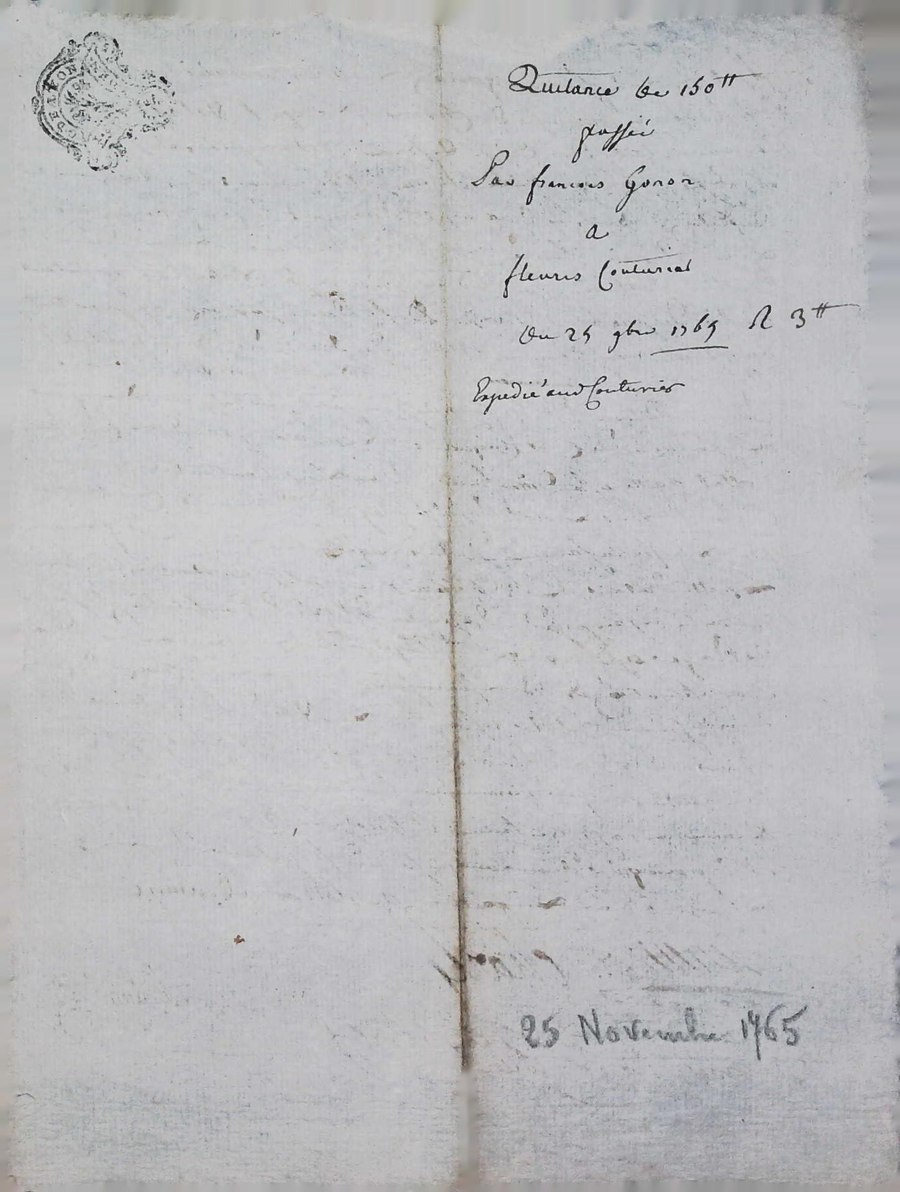 Quitance de 150tt
passée
Par francois Goron
a
fleuris Couturiat
Du 25 9bre 1765 R 3tt
Expedié aud Couturier
25 Novembre 1765